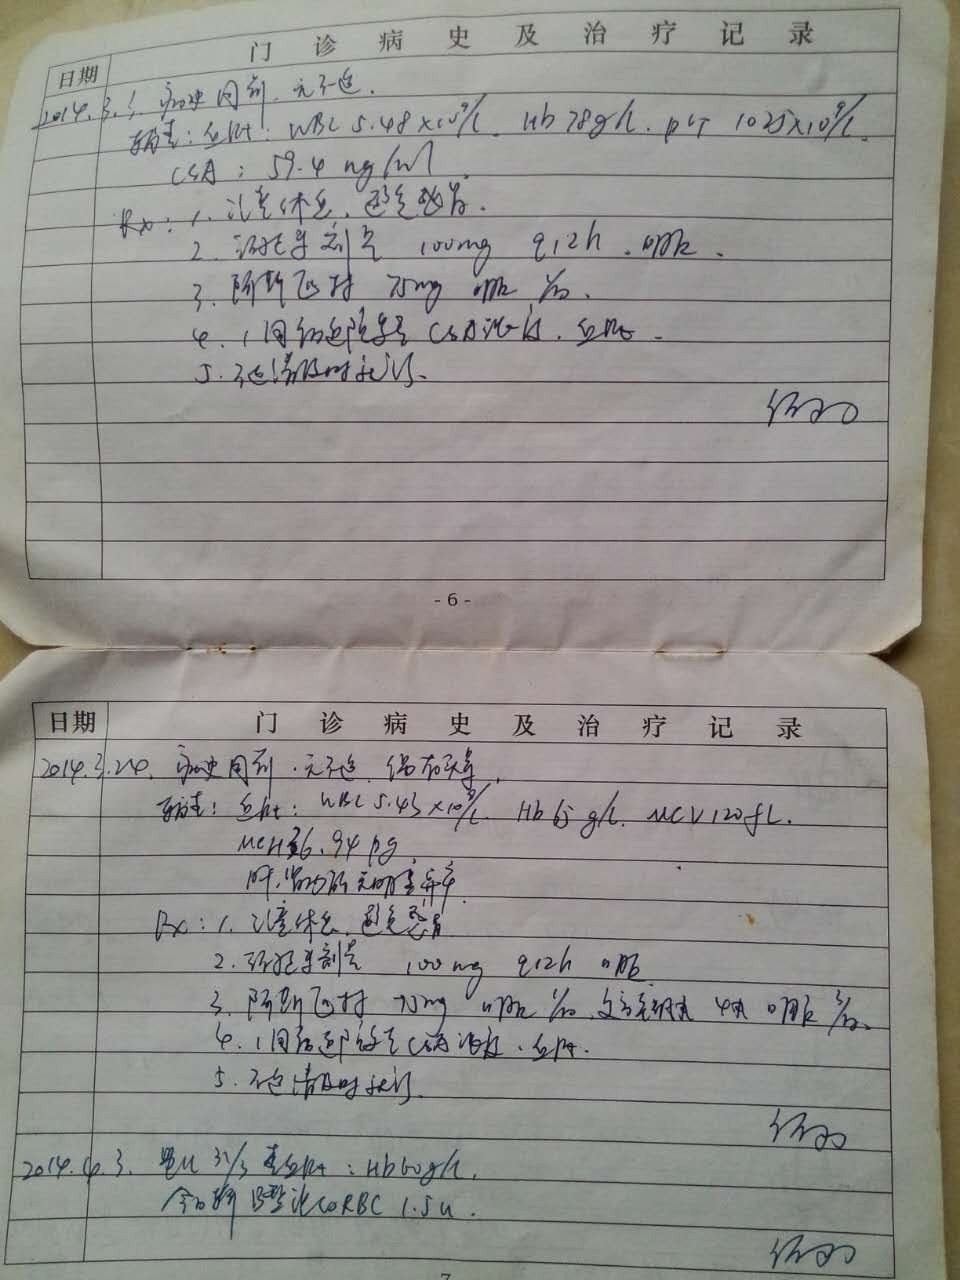 门诊病史及治疗记录
日期
2014.3.1. 病史同前，无不适.
辅查：血常规：WBC 5.48×10^9/L. Hb 78g/L. PLT 1025×10^9/L.
CSA：59.4 ng/ml.
Rx：1. 注意休息，避免感冒.
2. 环孢素 100mg q12h 口服.
3. 阿斯匹林 75mg 口服 1/日.
4. 1周后返院查 CSA浓度，血常规.
5. 不适请及时就诊.
- 6 -
日期 门诊病史及治疗记录
2014.3.24. 病史同前，无不适，
辅查：血常规：WBC 5.43×10^9/L. Hb 65g/L. MCV 120fL.
MCH 36.94pg.
肝、肾功能无明显异常
Rx：1. 注意休息，避免感冒
2. 环孢素 100mg q12h 口服
3. 阿斯匹林 75mg 口服 1/日. 4片 口服 3/日.
4. 1周后返院查CSA浓度、血常规.
5. 不适请及时就诊.
2014.4.3. 患儿 31/3 查血常规：Hb 60g/L.
今 RBC 1.5u.
7